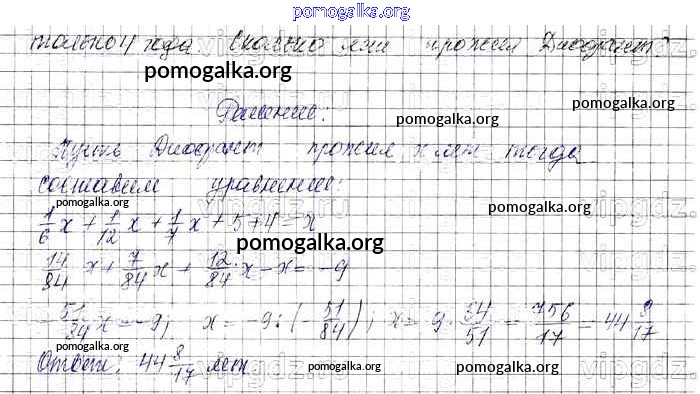 pomogalka.org
только 4 года Сколько лет прожил Диофант?
pomogalka.org
pomogalka.org
Решение:
pomogalka.org
Пусть Диофант прожил x лет тогда
составим уравнение:
pomogalka.org
pomogalka.org
1/6 x + 1/12 x + 1/7 x + 5 + 4 = x
pomogalka.org
14/84 x + 7/84 x + 12/84 x - x = -9
-51/84 x = -9; x = -9 : (-51/84); x = 9 · 84/51 = 756/17 = 44 8/17
Ответ: 44 8/17 лет
pomogalka.org
pomogalka.org
vipgdz.ru